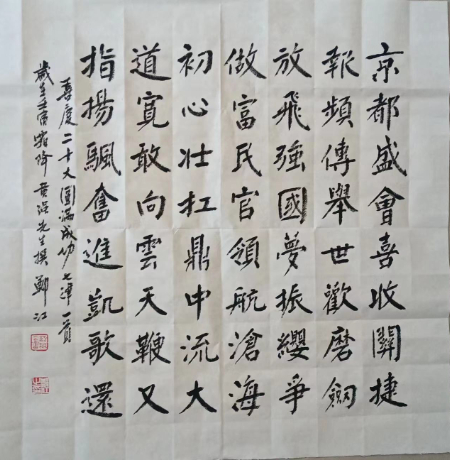 京都盛會喜收關捷
報頻傳舉世歡磨劍
放飛強國夢振纓爭
做富民官領航滄海
初心壯扛鼎中流大
道寬敢向雲天鞭又
指揚颿奮進凱歌還
喜慶二十大圓滿成功七律一首
歲在壬寅霜降黄先生撰鄭江